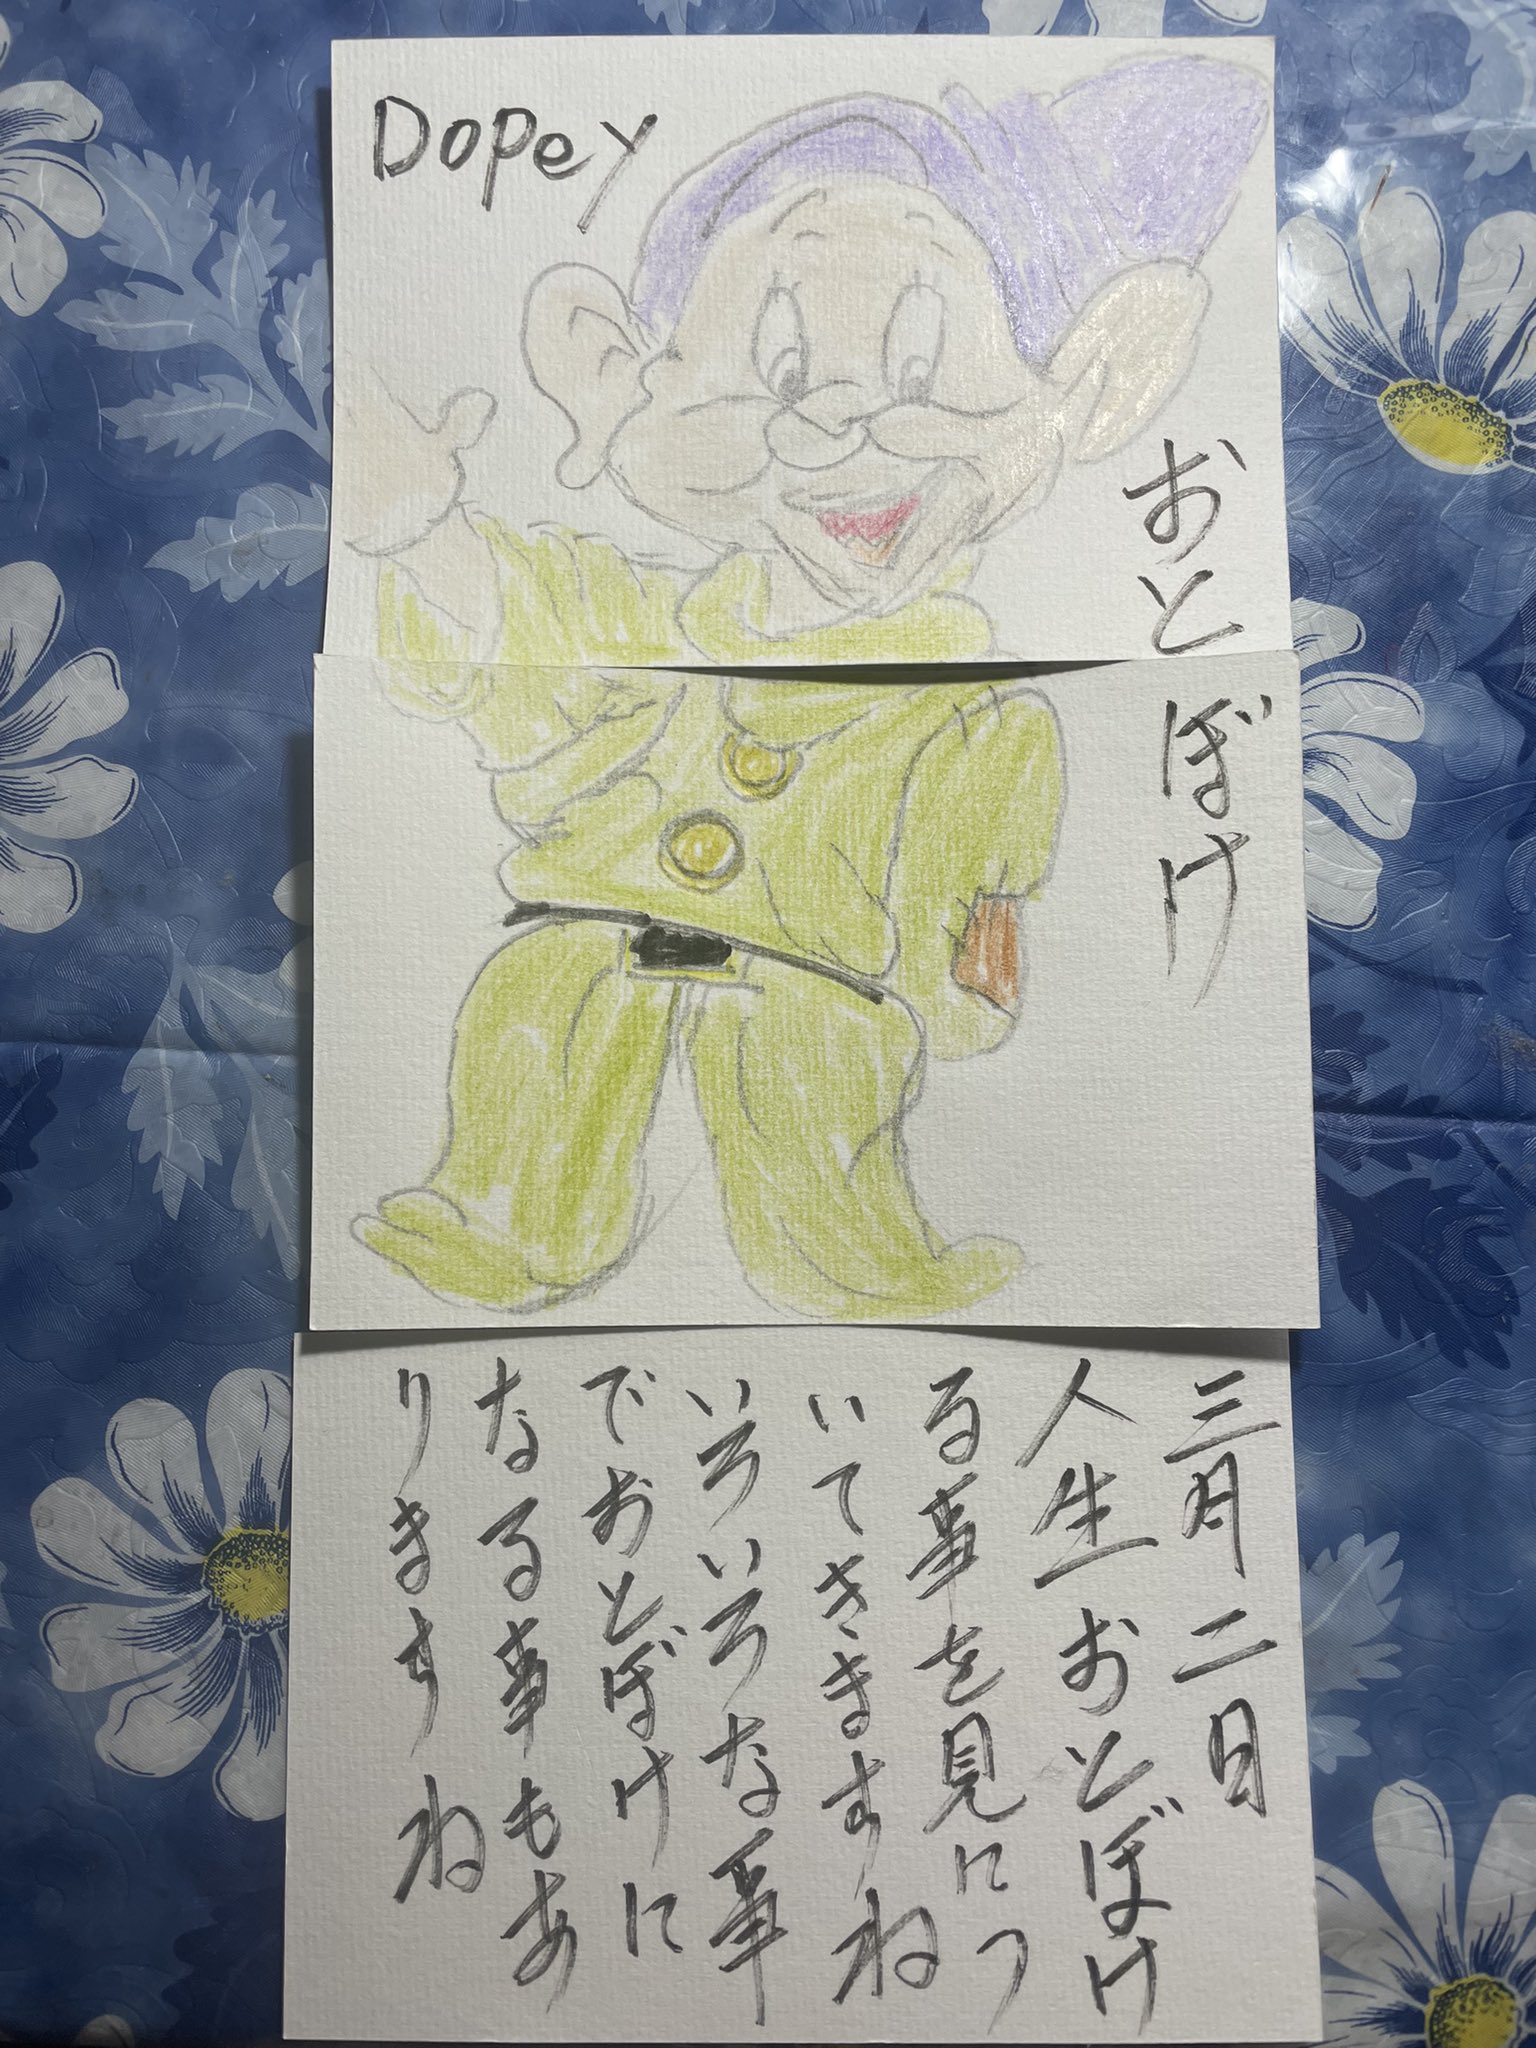 Dopey
おとぼけ
三月二日
人生おとぼけ
る事を見につ
いてきますね
いろいろな事
でおとぼけに
なる事もあ
りますね